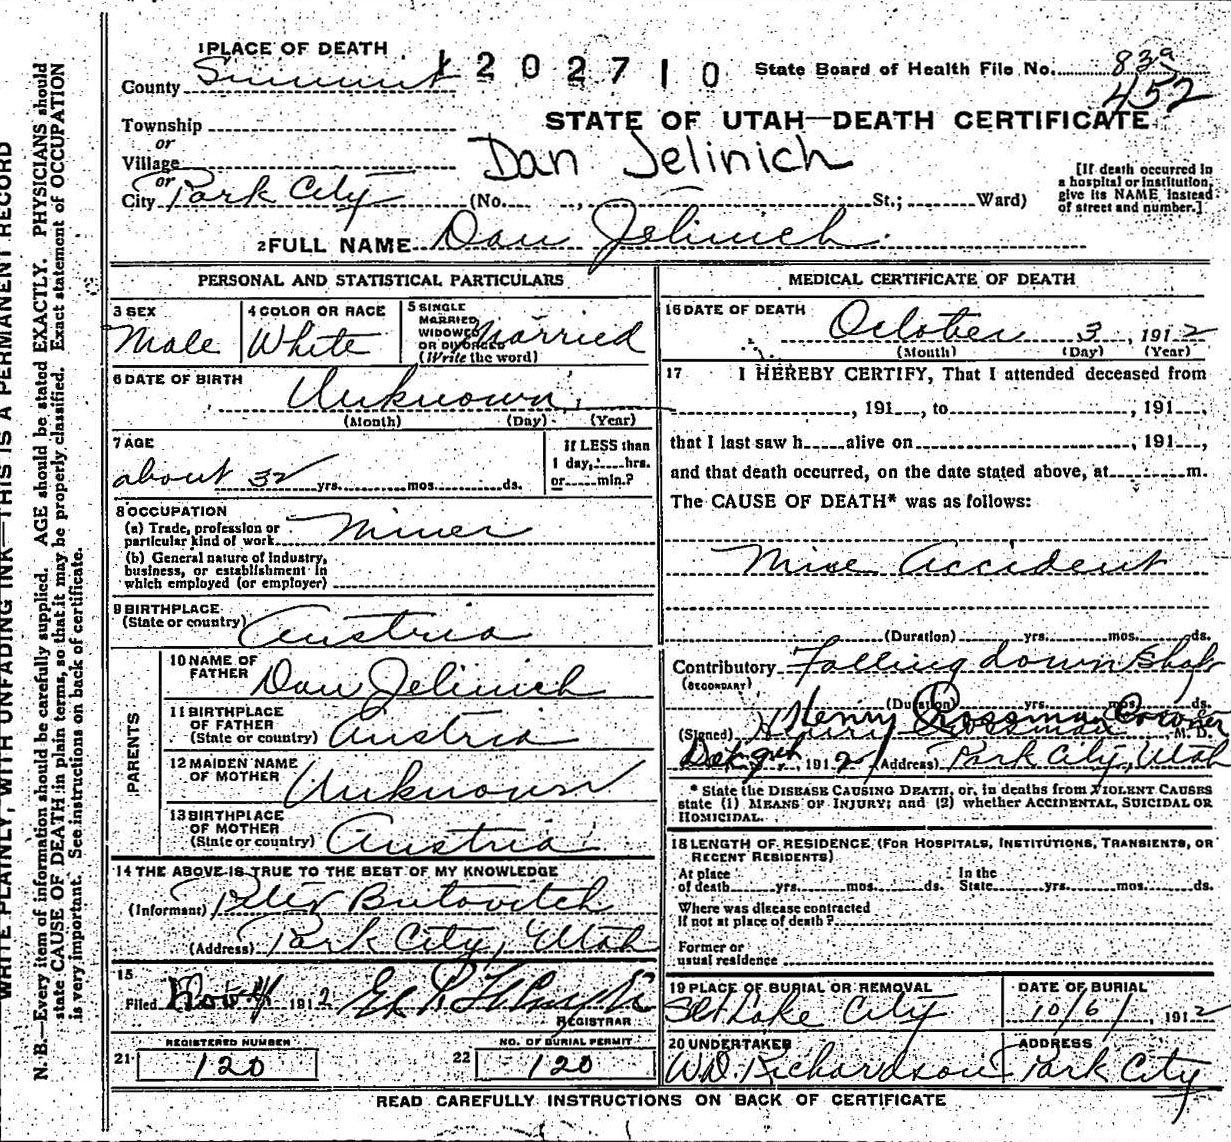 WRITE PLAINLY, WITH UNFADING INK—THIS IS A PERMANENT RECORD
N. B.—Every item of information should be carefully supplied. AGE should be stated EXACTLY. PHYSICIANS should
state CAUSE OF DEATH in plain terms, so that it may be properly classified. Exact statement of OCCUPATION
is very important. See instructions on back of certificate.
1 PLACE OF DEATH
County Summit
1202710
State Board of Health File No. 839
452
Township
or
Village
or
City Park City
STATE OF UTAH—DEATH CERTIFICATE
Dan Jelinich
(No. , St.; Ward)
[If death occurred in
a hospital or institution,
give its NAME instead
of street and number.]
2 FULL NAME Dan Jelinich.
PERSONAL AND STATISTICAL PARTICULARS
3 SEX
Male
4 COLOR OR RACE
White
5 SINGLE
MARRIED
WIDOWED
OR DIVORCED
(Write the word)
Married
6 DATE OF BIRTH
Unknown
(Month) (Day) (Year)
7 AGE
about 32 yrs. mos. ds.
If LESS than
1 day, hrs.
or min.?
8 OCCUPATION
(a) Trade, profession or
particular kind of work Miner
(b) General nature of industry,
business, or establishment in
which employed (or employer)
9 BIRTHPLACE
(State or country) Austria
PARENTS
10 NAME OF
FATHER Dan Jelinich
11 BIRTHPLACE
OF FATHER
(State or country) Austria
12 MAIDEN NAME
OF MOTHER Unknown
13 BIRTHPLACE
OF MOTHER
(State or country) Austria
14 THE ABOVE IS TRUE TO THE BEST OF MY KNOWLEDGE
(Informant) Peter Butovitch
(Address) Park City, Utah
15
Filed Nov 4 1912
REGISTRAR
21 REGISTERED NUMBER
120
22 NO. OF BURIAL PERMIT
120
MEDICAL CERTIFICATE OF DEATH
16 DATE OF DEATH
October 3, 1912
(Month) (Day) (Year)
17 I HEREBY CERTIFY, That I attended deceased from
, 191 , to , 191 ,
that I last saw h alive on , 191 ,
and that death occurred, on the date stated above, at m.
The CAUSE OF DEATH* was as follows:
Mine Accident
(Duration) yrs. mos. ds.
Contributory Falling down Shaft
(SECONDARY)
(Duration) yrs. mos. ds.
(Signed) Henry Crossman Coroner M. D.
, 1912 (Address) Park City, Utah
* State the DISEASE CAUSING DEATH, or, in deaths from VIOLENT CAUSES
state (1) MEANS OF INJURY; and (2) whether ACCIDENTAL, SUICIDAL OR
HOMICIDAL.
18 LENGTH OF RESIDENCE (FOR HOSPITALS, INSTITUTIONS, TRANSIENTS, OR
RECENT RESIDENTS)
At place
of death yrs. mos. ds.
In the
State yrs. mos. ds.
Where was disease contracted
if not at place of death?
Former or
usual residence
19 PLACE OF BURIAL OR REMOVAL
Salt Lake City
DATE OF BURIAL
10/6/, 1912
20 UNDERTAKER
W.D. Richardson
ADDRESS
Park City
READ CAREFULLY INSTRUCTIONS ON BACK OF CERTIFICATE